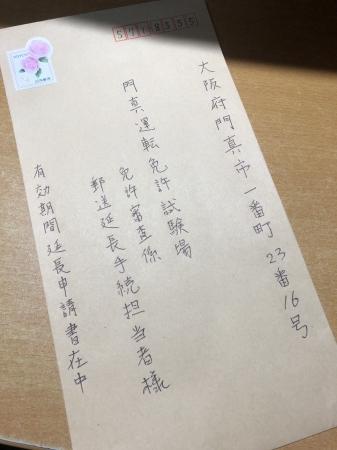 5718555
大阪府門真市一番町23番16号
門真運転免許試験場
免許審査係
郵送延長手続担当者様
有効期間延長申請書在中